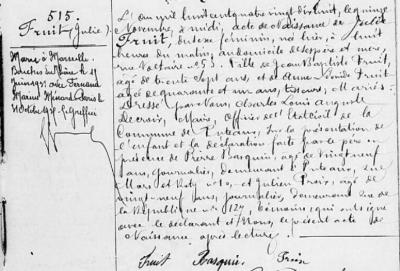 515.
Fruit (Julie).
Marié à Marseille
Bouches du Rhône le
avec Fernand
Marius
Octobre
L'an mil huit cent quatre vingt dix huit, le quinze
Novembre, à midi, acte de Naissance de Julie
Fruit, du sexe féminin, née hier, à huit
heures du matin, au domicile de ses père et mère,
rue Voltaire n° 53. Fille de Jean Baptiste Fruit,
âgé de trente sept ans, et de Anne Fruit
âgée de quarante et un ans, mariés.
Dressé par Nous, Charles Louis Auguste
Maire, Officier de l'Etat Civil de la
Commune de Puteaux, sur la présentation de
l'enfant et la déclaration faite par le père en
présence de Pierre Basquin, âgé de vingt neuf
ans, journalier, demeurant à Puteaux, rue
n° 10, et Julien Proix, âgé de
vingt-neuf ans, journalier, demeurant rue de
la République n° 124, témoins, qui ont signé
avec le déclarant et Nous, le présent acte de
Naissance après lecture.
Fruit Basquin Proix